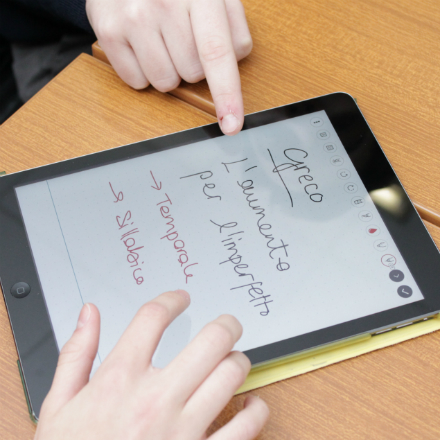 Greco
L'aumento
per l'imperfetto
→ Temporale
→ Sillabico